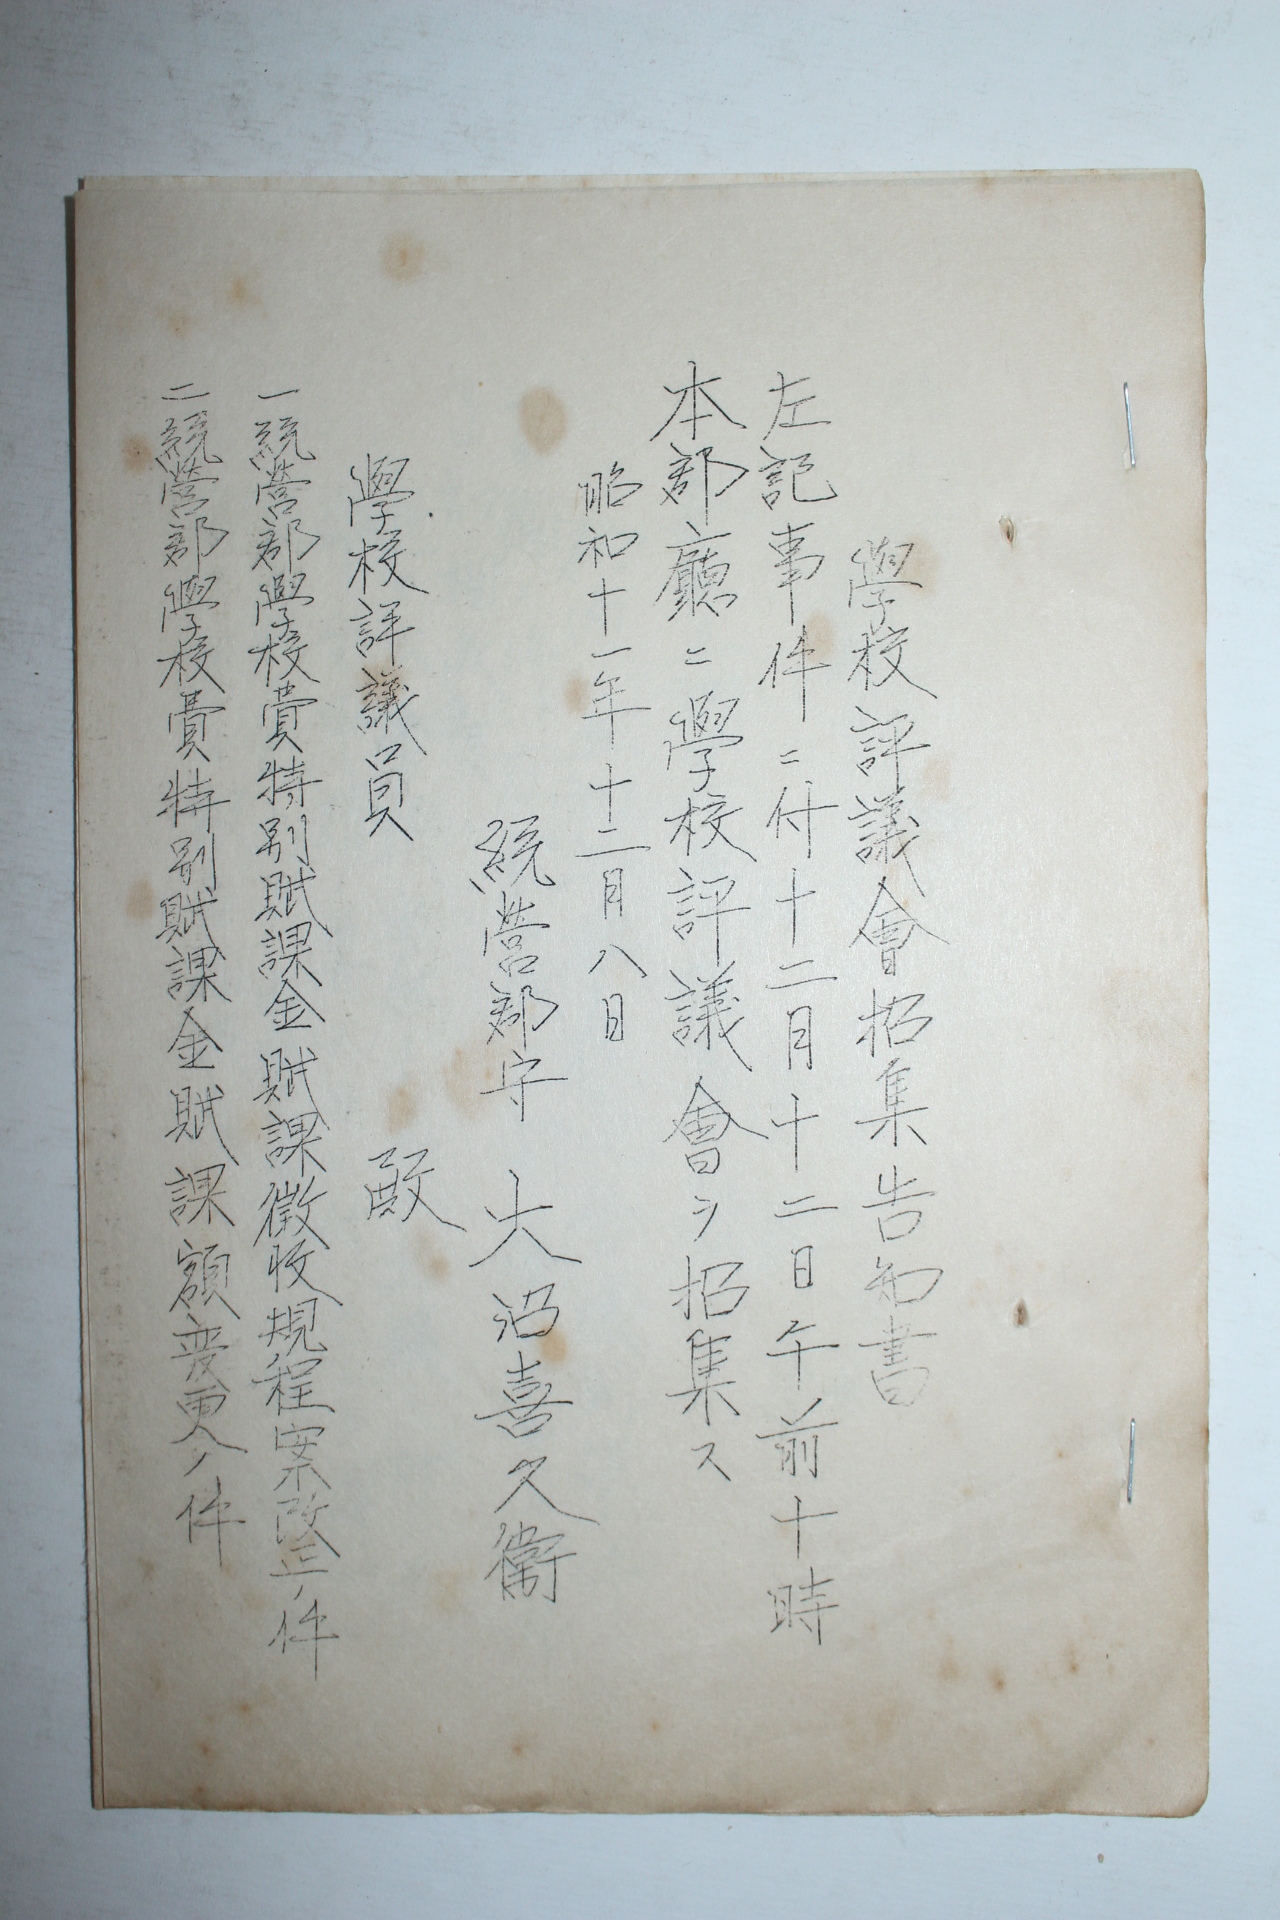 學校評議會招集告知書
左記事件ニ付十二月十二日午前十時
本郡廳ニ學校評議會ヲ招集ス
昭和十一年十二月八日
統營郡守 大沼喜久衞
學校評議員 殿
一統營郡學校費特別賦課金賦課徵收規程案改正ノ件
二統營郡學校費特別賦課金賦課額変更ノ件